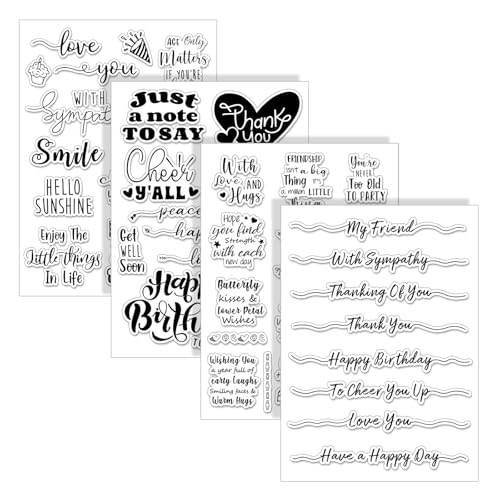 love
you
Act Only
Matters
IF YOU'RE
WITH
Sympat
Smile
HELLO
SUNSHINE
Enjoy The
Little things
In Life
Just
a note
TO SAY
Thank
You
Cheer
Y'ALL
peace
Get
WELL
Soon
Happy
Birth
With
Love AND
Hugs
FRIENDSHIP
isn't a big
Thing it's
a million LITTLE
Things
You're
NEVER
Too Old
TO PARTY
Hope
you find
Strength
with each
new day
Butterfly
kisses &
Petal
Wishes
Wishing You
a year full of
early laughs
Smiling faces &
Warm Hugs
My Friend
With Sympathy
Thanking Of You
Thank You
Happy Birthday
To Cheer You Up
Love You
Have a Happy Day